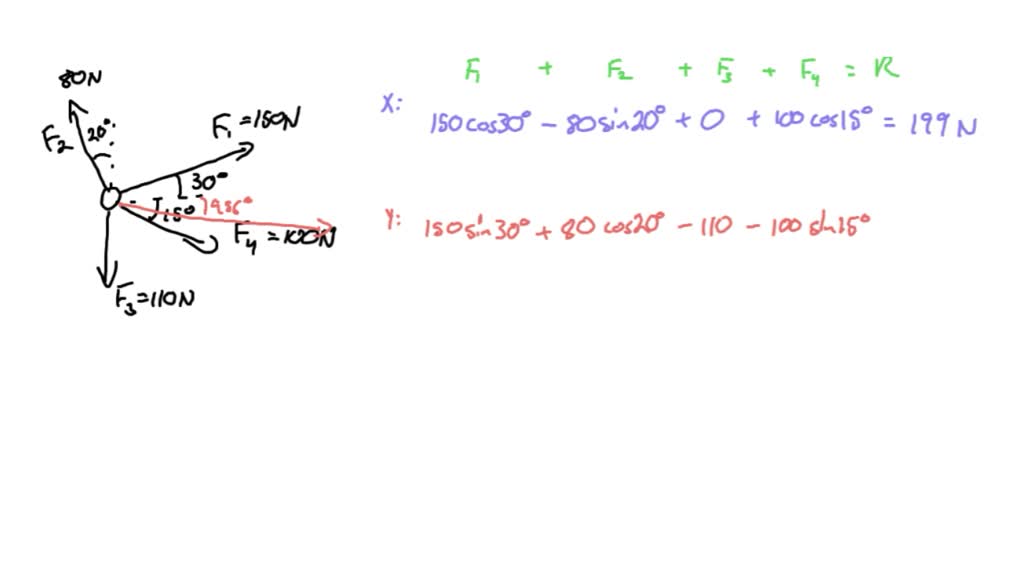 80N
20°
F2
F1 = 150N
30°
15°
F4 = 100N
F3 = 110N
F1 + F2 + F3 + F4 = R
X: 150 cos 30° - 80 sin 20° + 0 + 100 cos 15° = 199 N
Y: 150 sin 30° + 80 cos 20° - 110 - 100 sin 15°